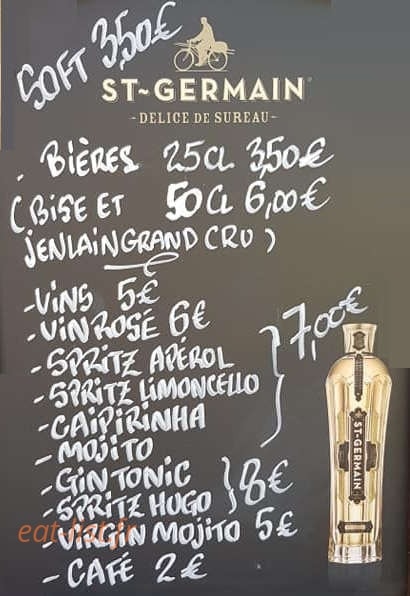 SOFT 3,50€
ST~GERMAIN
-DELICE DE SUREAU-
- BIÈRES 25CL 3,50€
(BISE ET 50CL 6,00€
JENLAIN GRAND CRU)
-VINS 5€
-VIN ROSÉ 6€
-SPRITZ APÉROL
-SPRITZ LIMONCELLO
-CAIPIRINHA
-MOJITO
7,00€
-GIN TONIC
-SPRITZ HUGO
8€
-VIRGIN MOJITO 5€
- CAFÉ 2€
ST-GERMAIN
eat-list.fr